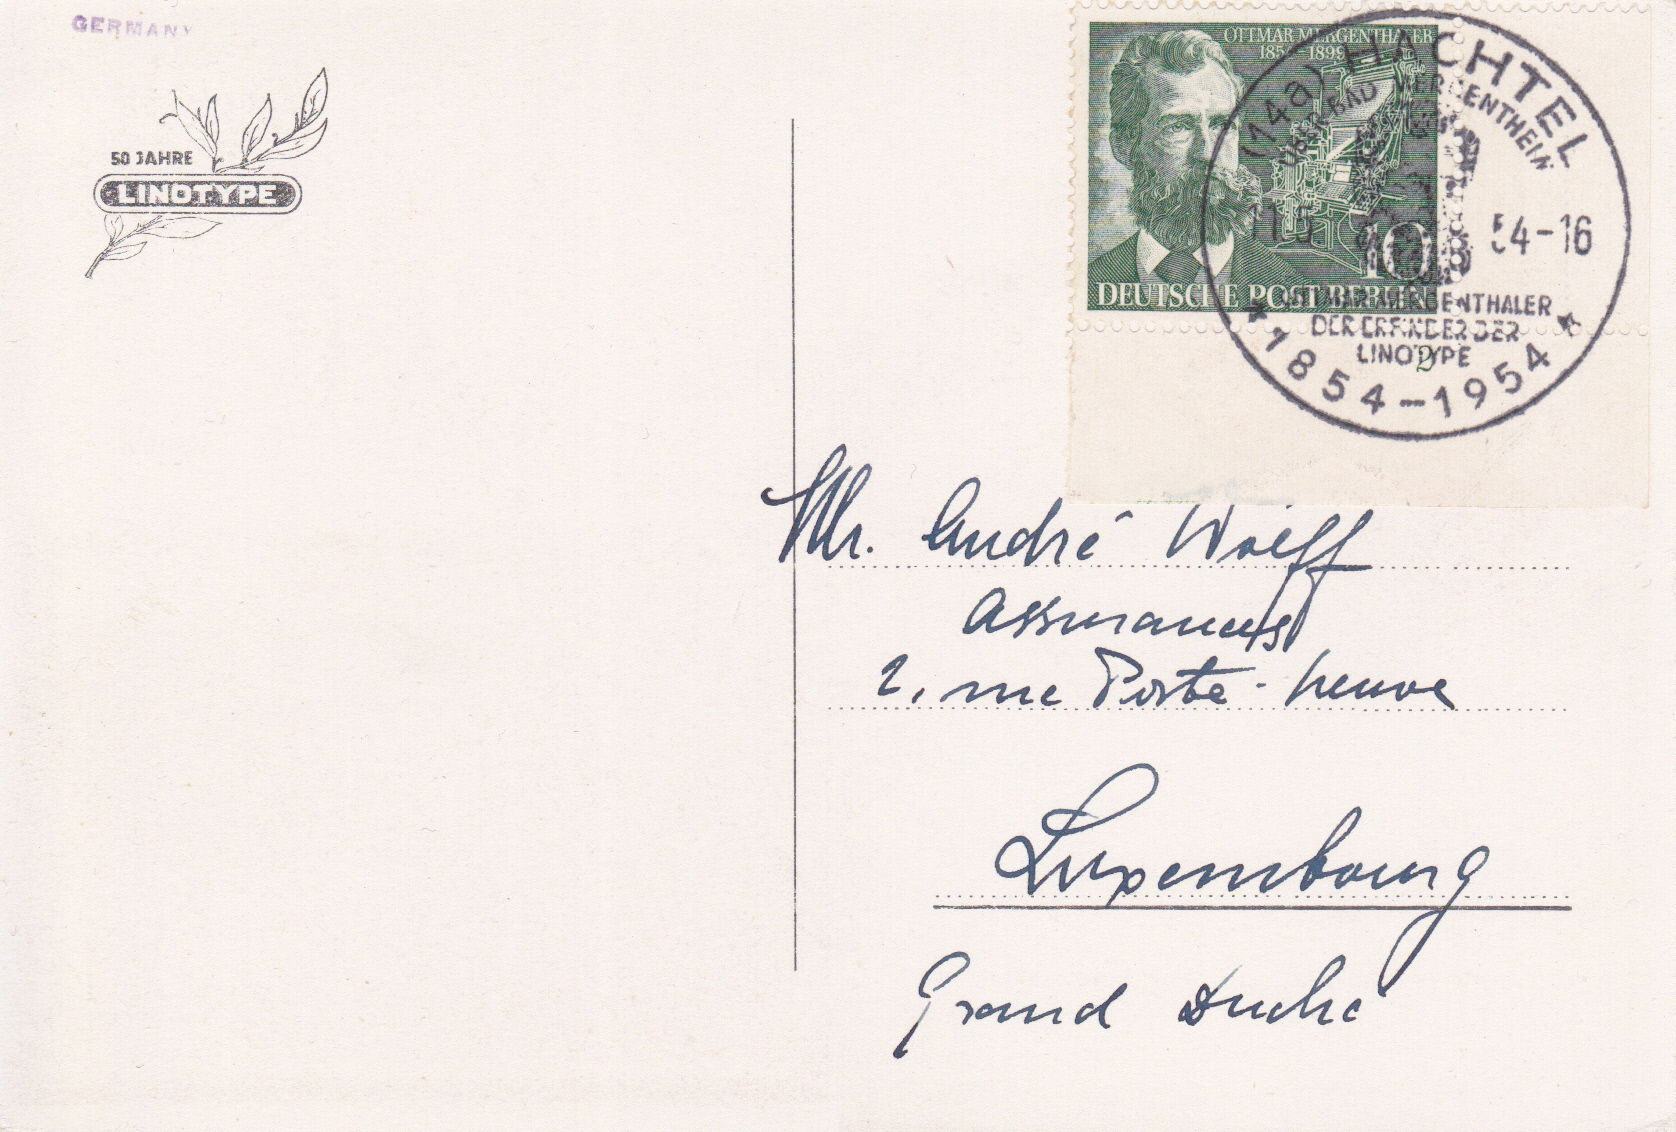 GERMANY
50 JAHRE
LINOTYPE
OTTMAR MERGENTHALER
185 1899
10
DEUTSCHE POST BERLIN
(14a) HACHTEL
ÜBER BAD MERGENTHEIM
11.5 54-16
OTTMAR MERGENTHALER
DER ERFINDER DER
LINOTYPE
1854-1954
2
Mr. André Wolff
Assurances
2, rue Poste-neuve
Luxembourg
Grand Duché